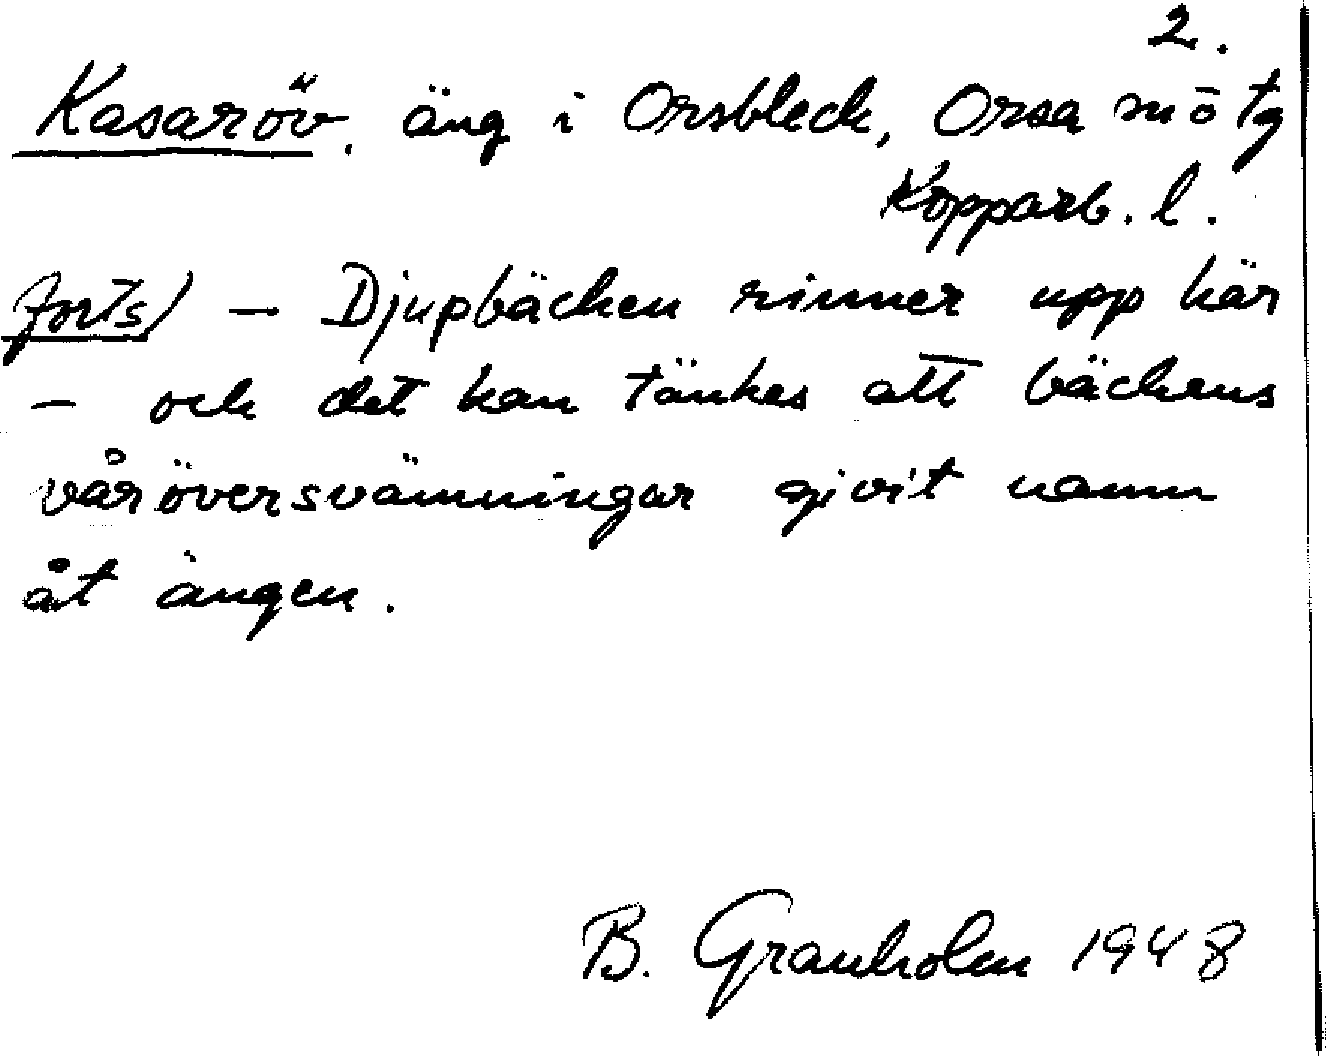 2.
Kasaröv, äng i Orsbleck, Orsa
Kopparb. l.
forts) - Djupbäcken rinner upp här
- och det kan tänkes att bäckens
våröversvämningar givit namn
åt ängen.
B. Granholm 1948